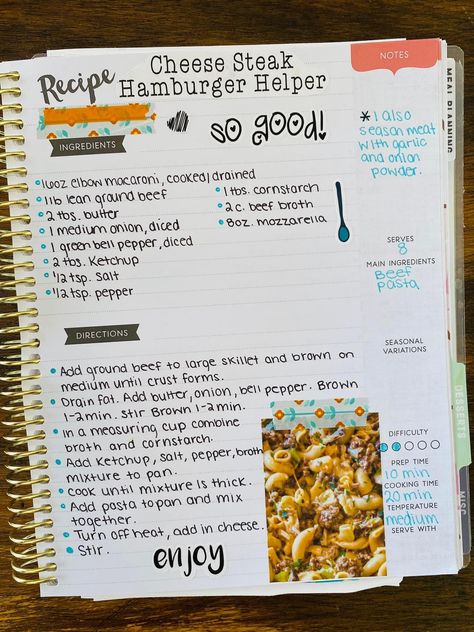 Recipe
Cheese Steak
Hamburger Helper
so good!
INGREDIENTS
16oz elbow macaroni, cooked/drained
1lb lean ground beef
2 tbs. butter
1 medium onion, diced
1 green bell pepper, diced
2 tbs. Ketchup
1/2 tsp. salt
1/2 tsp. pepper
1 tbs. cornstarch
2 c. beef broth
8oz. mozzarella
DIRECTIONS
Add ground beef to large skillet and brown on
medium until crust forms.
Drain fat. Add butter, onion, bell pepper. Brown
1-2 min. Stir Brown 1-2 min.
In a measuring cup combine
broth and cornstarch.
Add Ketchup, salt, pepper, broth
mixture to pan.
Cook until mixture is thick.
Add pasta to pan and mix
together.
Turn off heat, add in cheese.
Stir.
enjoy
NOTES
* I also
season meat
with garlic
and onion
powder.
SERVES
8
MAIN INGREDIENTS
Beef
pasta
SEASONAL
VARIATIONS
DIFFICULTY
PREP TIME
10 min
COOKING TIME
20 min
TEMPERATURE
medium
SERVE WITH
MEAL PLANNING
DESSERTS
MISC